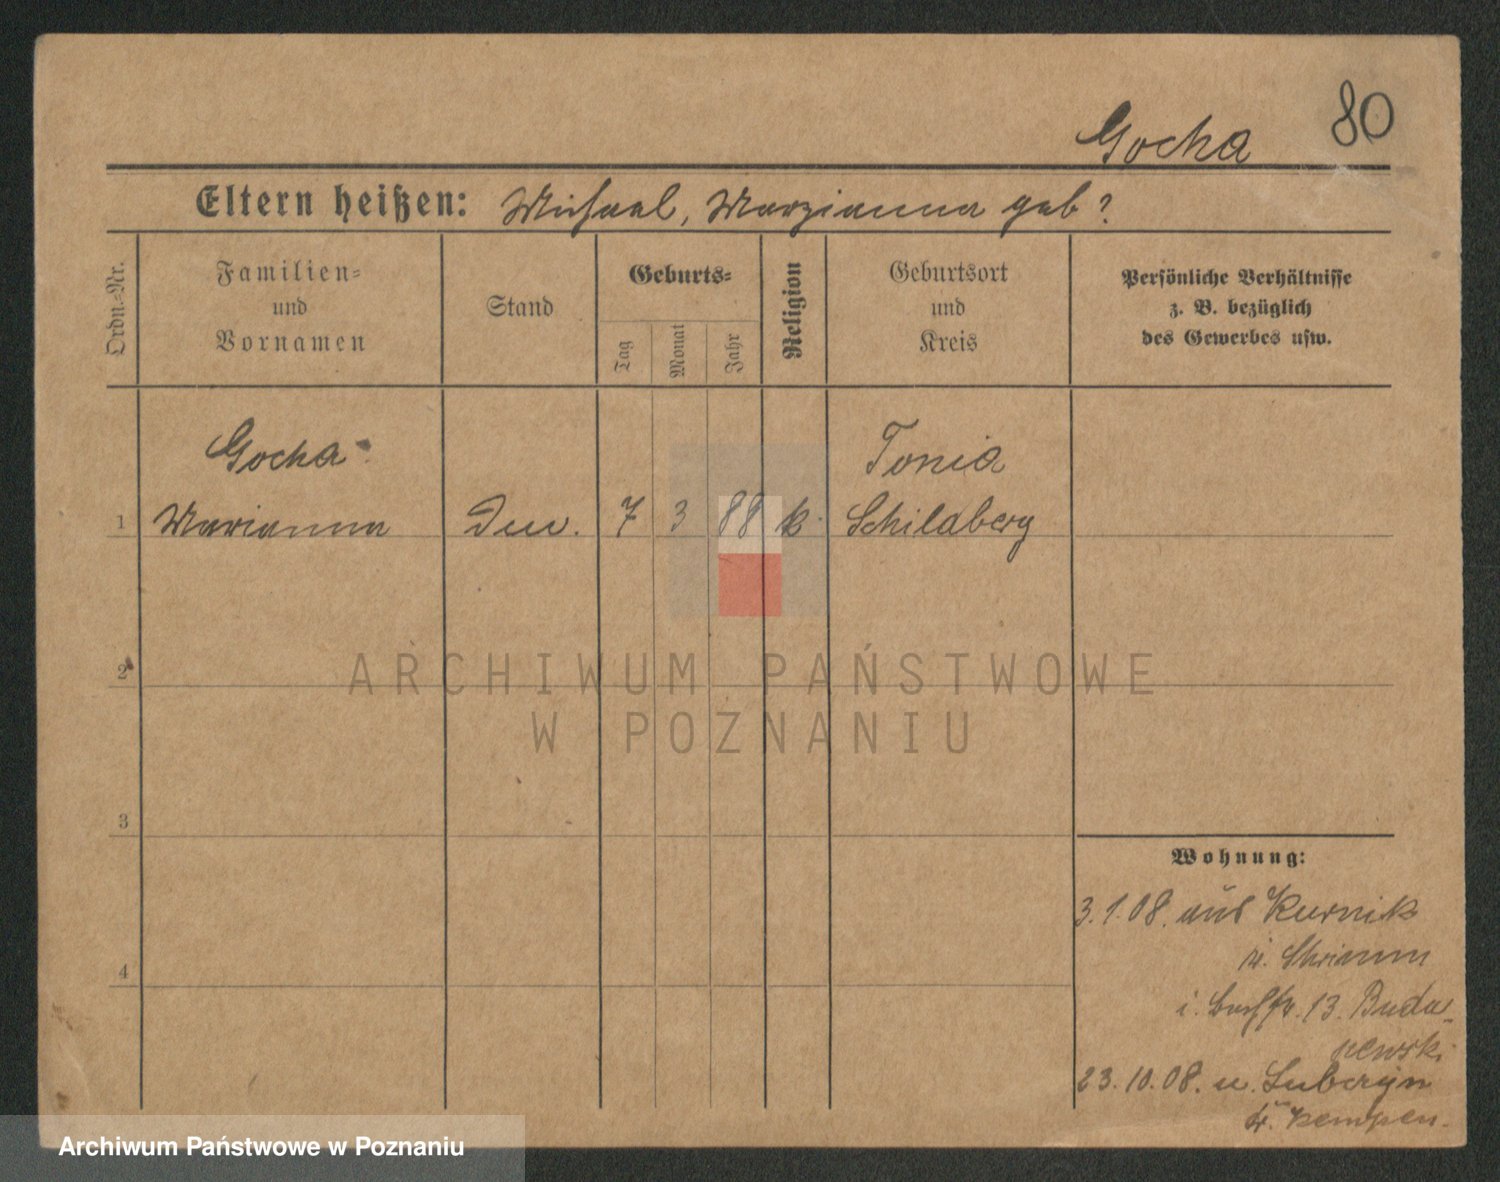 80
Gocha
Eltern heißen: Michael, Marzianna geb?
Ordn.-Nr.
Familien-
und
Vornamen
Stand
Geburts-
Tag
Monat
Jahr
Religion
Geburtsort
und
Kreis
Persönliche Verhältnisse
z. B. bezüglich
des Gewerbes usw.
Gocha Tonia
1 Marianna 7 3 88 k. Schildberg
2
3
4
Wohnung:
3.1.08. aus Kurnik
Schrimm
i. 13. Buda-
23.10.08. n.
Kr. Kempen.
ARCHIWUM PAŃSTWOWE
W POZNANIU
Archiwum Państwowe w Poznaniu